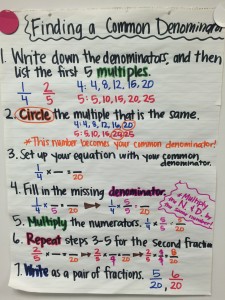 Finding a Common Denominator
1. Write down the denominators, and then
list the first 5 multiples.
1/4 2/5 4: 4, 8, 12, 16, 20
5: 5, 10, 15, 20, 25
2. Circle the multiple that is the same.
4: 4, 8, 12, 16, 20
5: 5, 10, 15, 20, 25
*This number becomes your common denominator!
3. Set up your equation with your common
denominator.
1/4 × — = /20
4. Fill in the missing denominator.
1/4 × — = /20 → 1/4 × /5 = /20
5. Multiply the numerators. 1/4 × 5/5 = 5/20
6. Repeat steps 3-5 for the second fraction
2/5 × — = /20 → 2/5 × /4 = /20 → 2/5 × 4/4 = 8/20
7. Write as a pair of fractions. 5/20, 8/20
*Multiply
the N & D by
the same